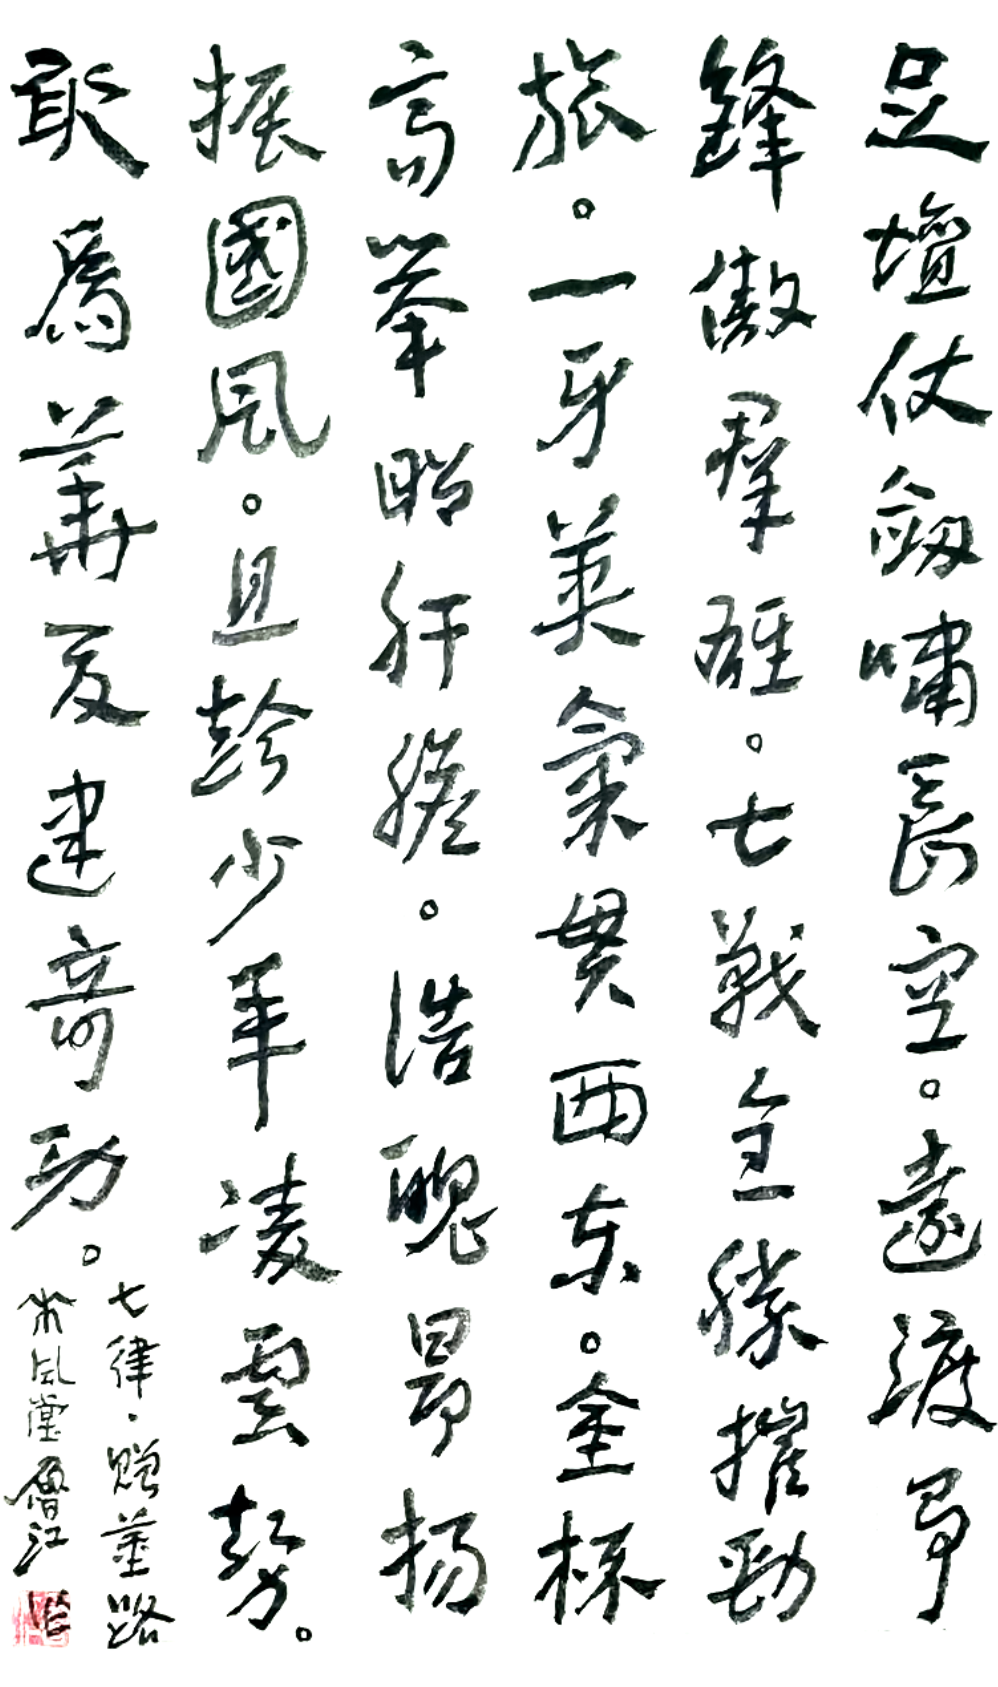 足壇仗劍嘯長空。遠渡爭
鋒傲群雄。七戰全勝摧勁
旅。一牙英氣貫西东。金杯
高举昭肝膽。浩魄昂扬
振國風。且趁少年凌雲势。
敢爲華夏建奇功。
七律·贈董路
木風堂曾江